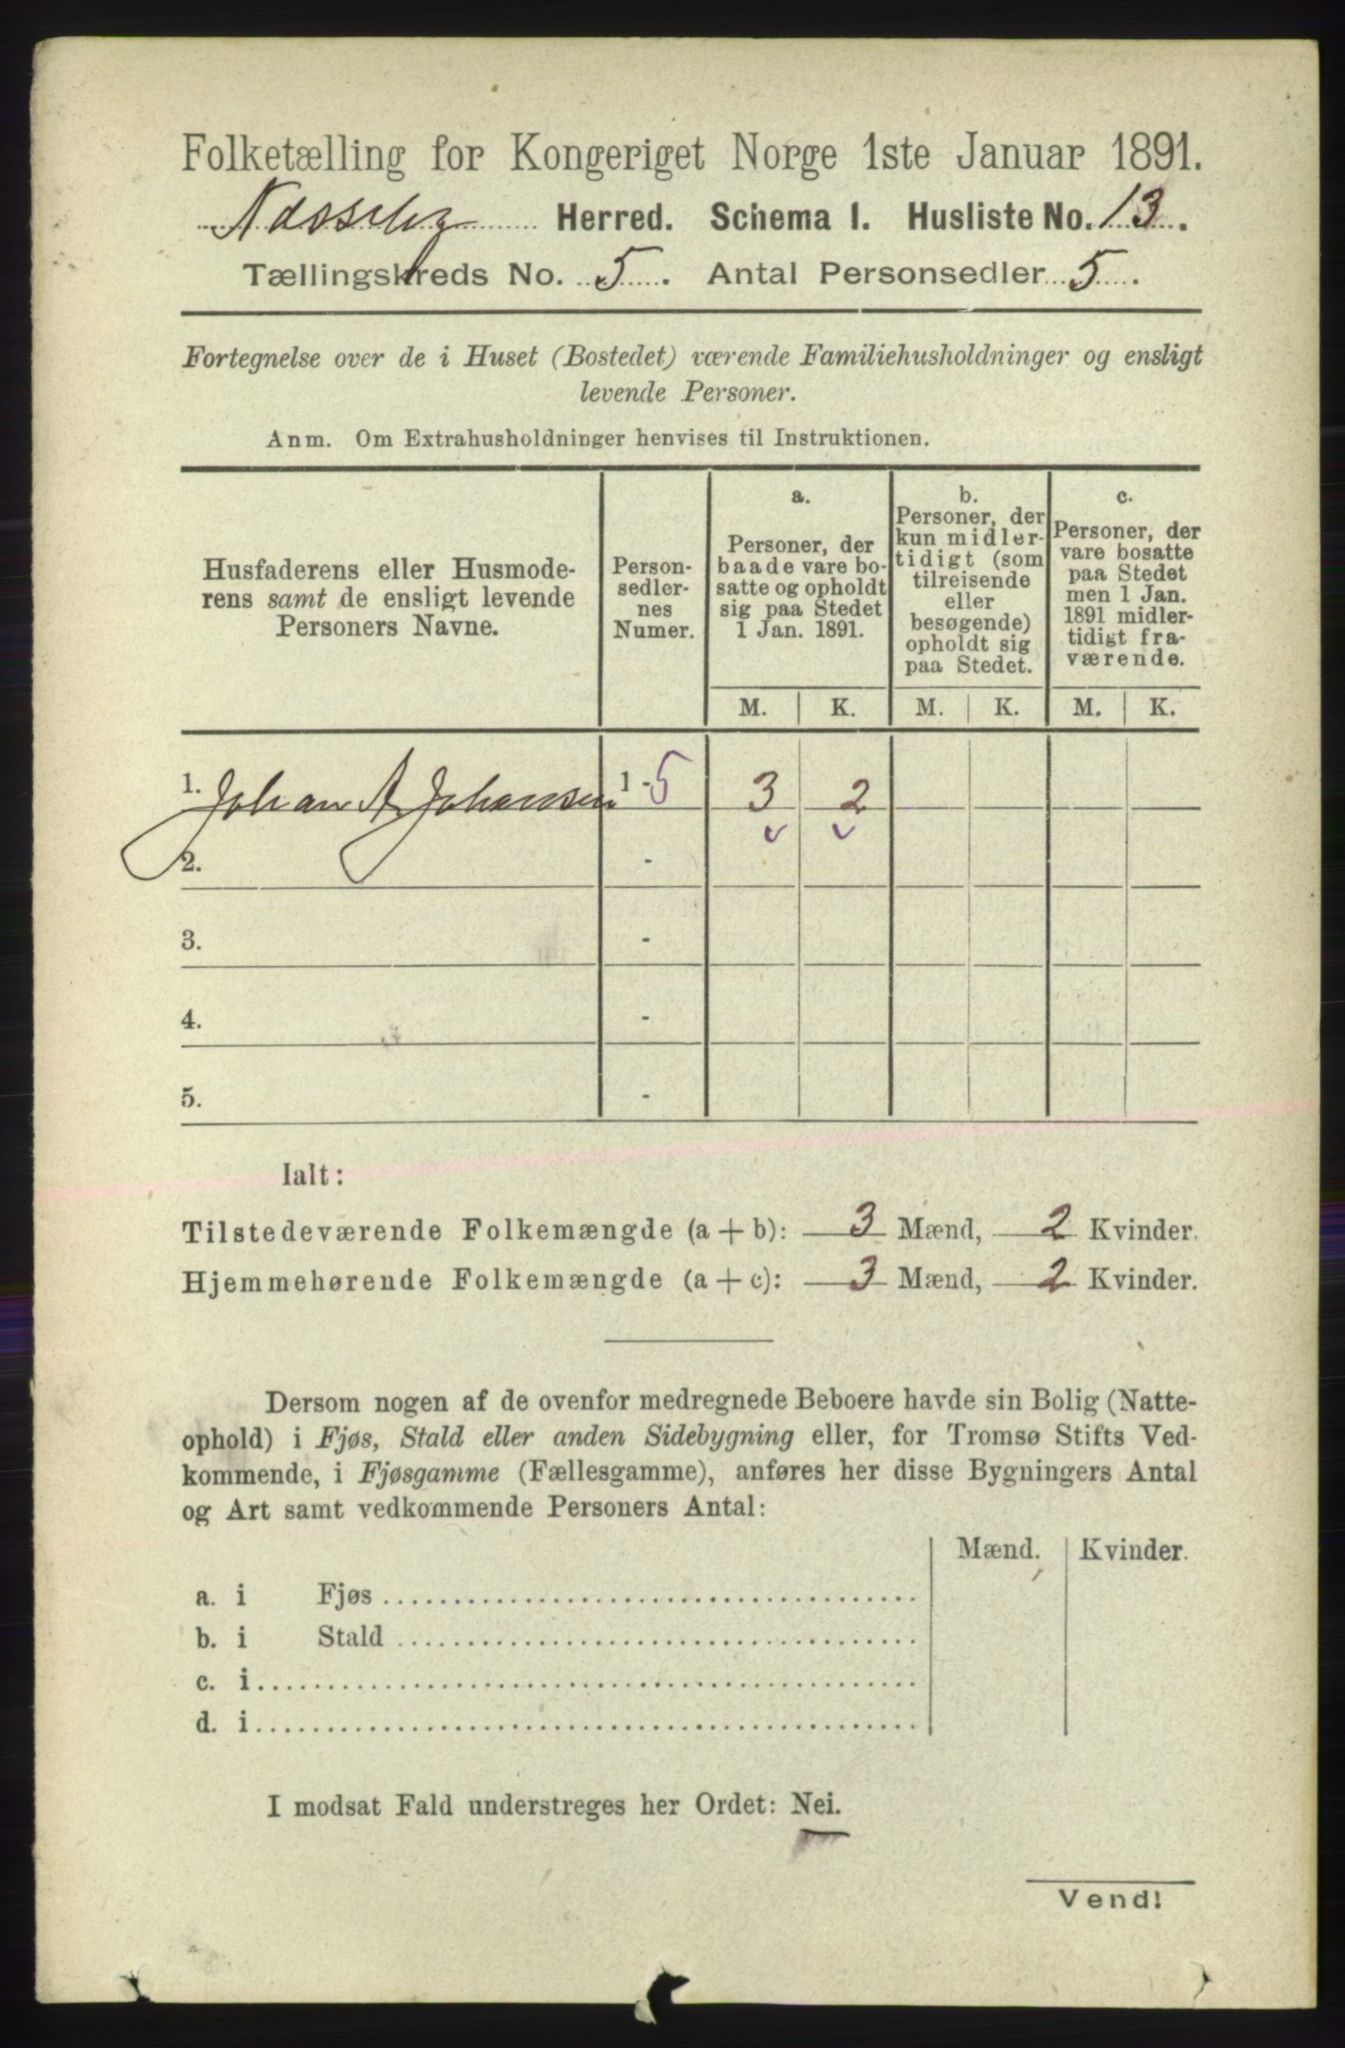 Folketælling for Kongeriget Norge 1ste Januar 1891.
Herred. Schema I. Husliste No. 13.
Tællingskreds No. 5. Antal Personsedler 5.
Fortegnelse over de i Huset (Bostedet) værende Familiehusholdninger og ensligt
levende Personer.
Anm. Om Extrahusholdninger henvises til Instruktionen.
Husfaderens eller Husmode-
rens samt de ensligt levende
Personers Navne.
Person-
sedler-
nes
Numer.
a.
Personer, der
baade vare bo-
satte og opholdt
sig paa Stedet
1 Jan. 1891.
b.
Personer, der
kun midler-
tidigt (som
tilreisende
eller
besøgende)
opholdt sig
paa Stedet.
c.
Personer, der
vare bosatte
paa Stedet
men 1 Jan.
1891 midler-
tidigt fra-
værende.
M. K. M. K. M. K.
1. Johan A Johansen 1-5 3 2
2. -
3. -
4. -
5. -
Ialt:
Tilstedeværende Folkemængde (a + b): 3 Mænd, 2 Kvinder.
Hjemmehørende Folkemængde (a + c): 3 Mænd, 2 Kvinder.
Dersom nogen af de ovenfor medregnede Beboere havde sin Bolig (Natte-
ophold) i Fjøs, Stald eller anden Sidebygning eller, for Tromsø Stifts Ved-
kommende, i Fjøsgamme (Fællesgamme), anføres her disse Bygningers Antal
og Art samt vedkommende Personers Antal:
Mænd. Kvinder.
a. i Fjøs
b. i Stald
c. i
d. i
I modsat Fald understreges her Ordet: Nei.
Vend!